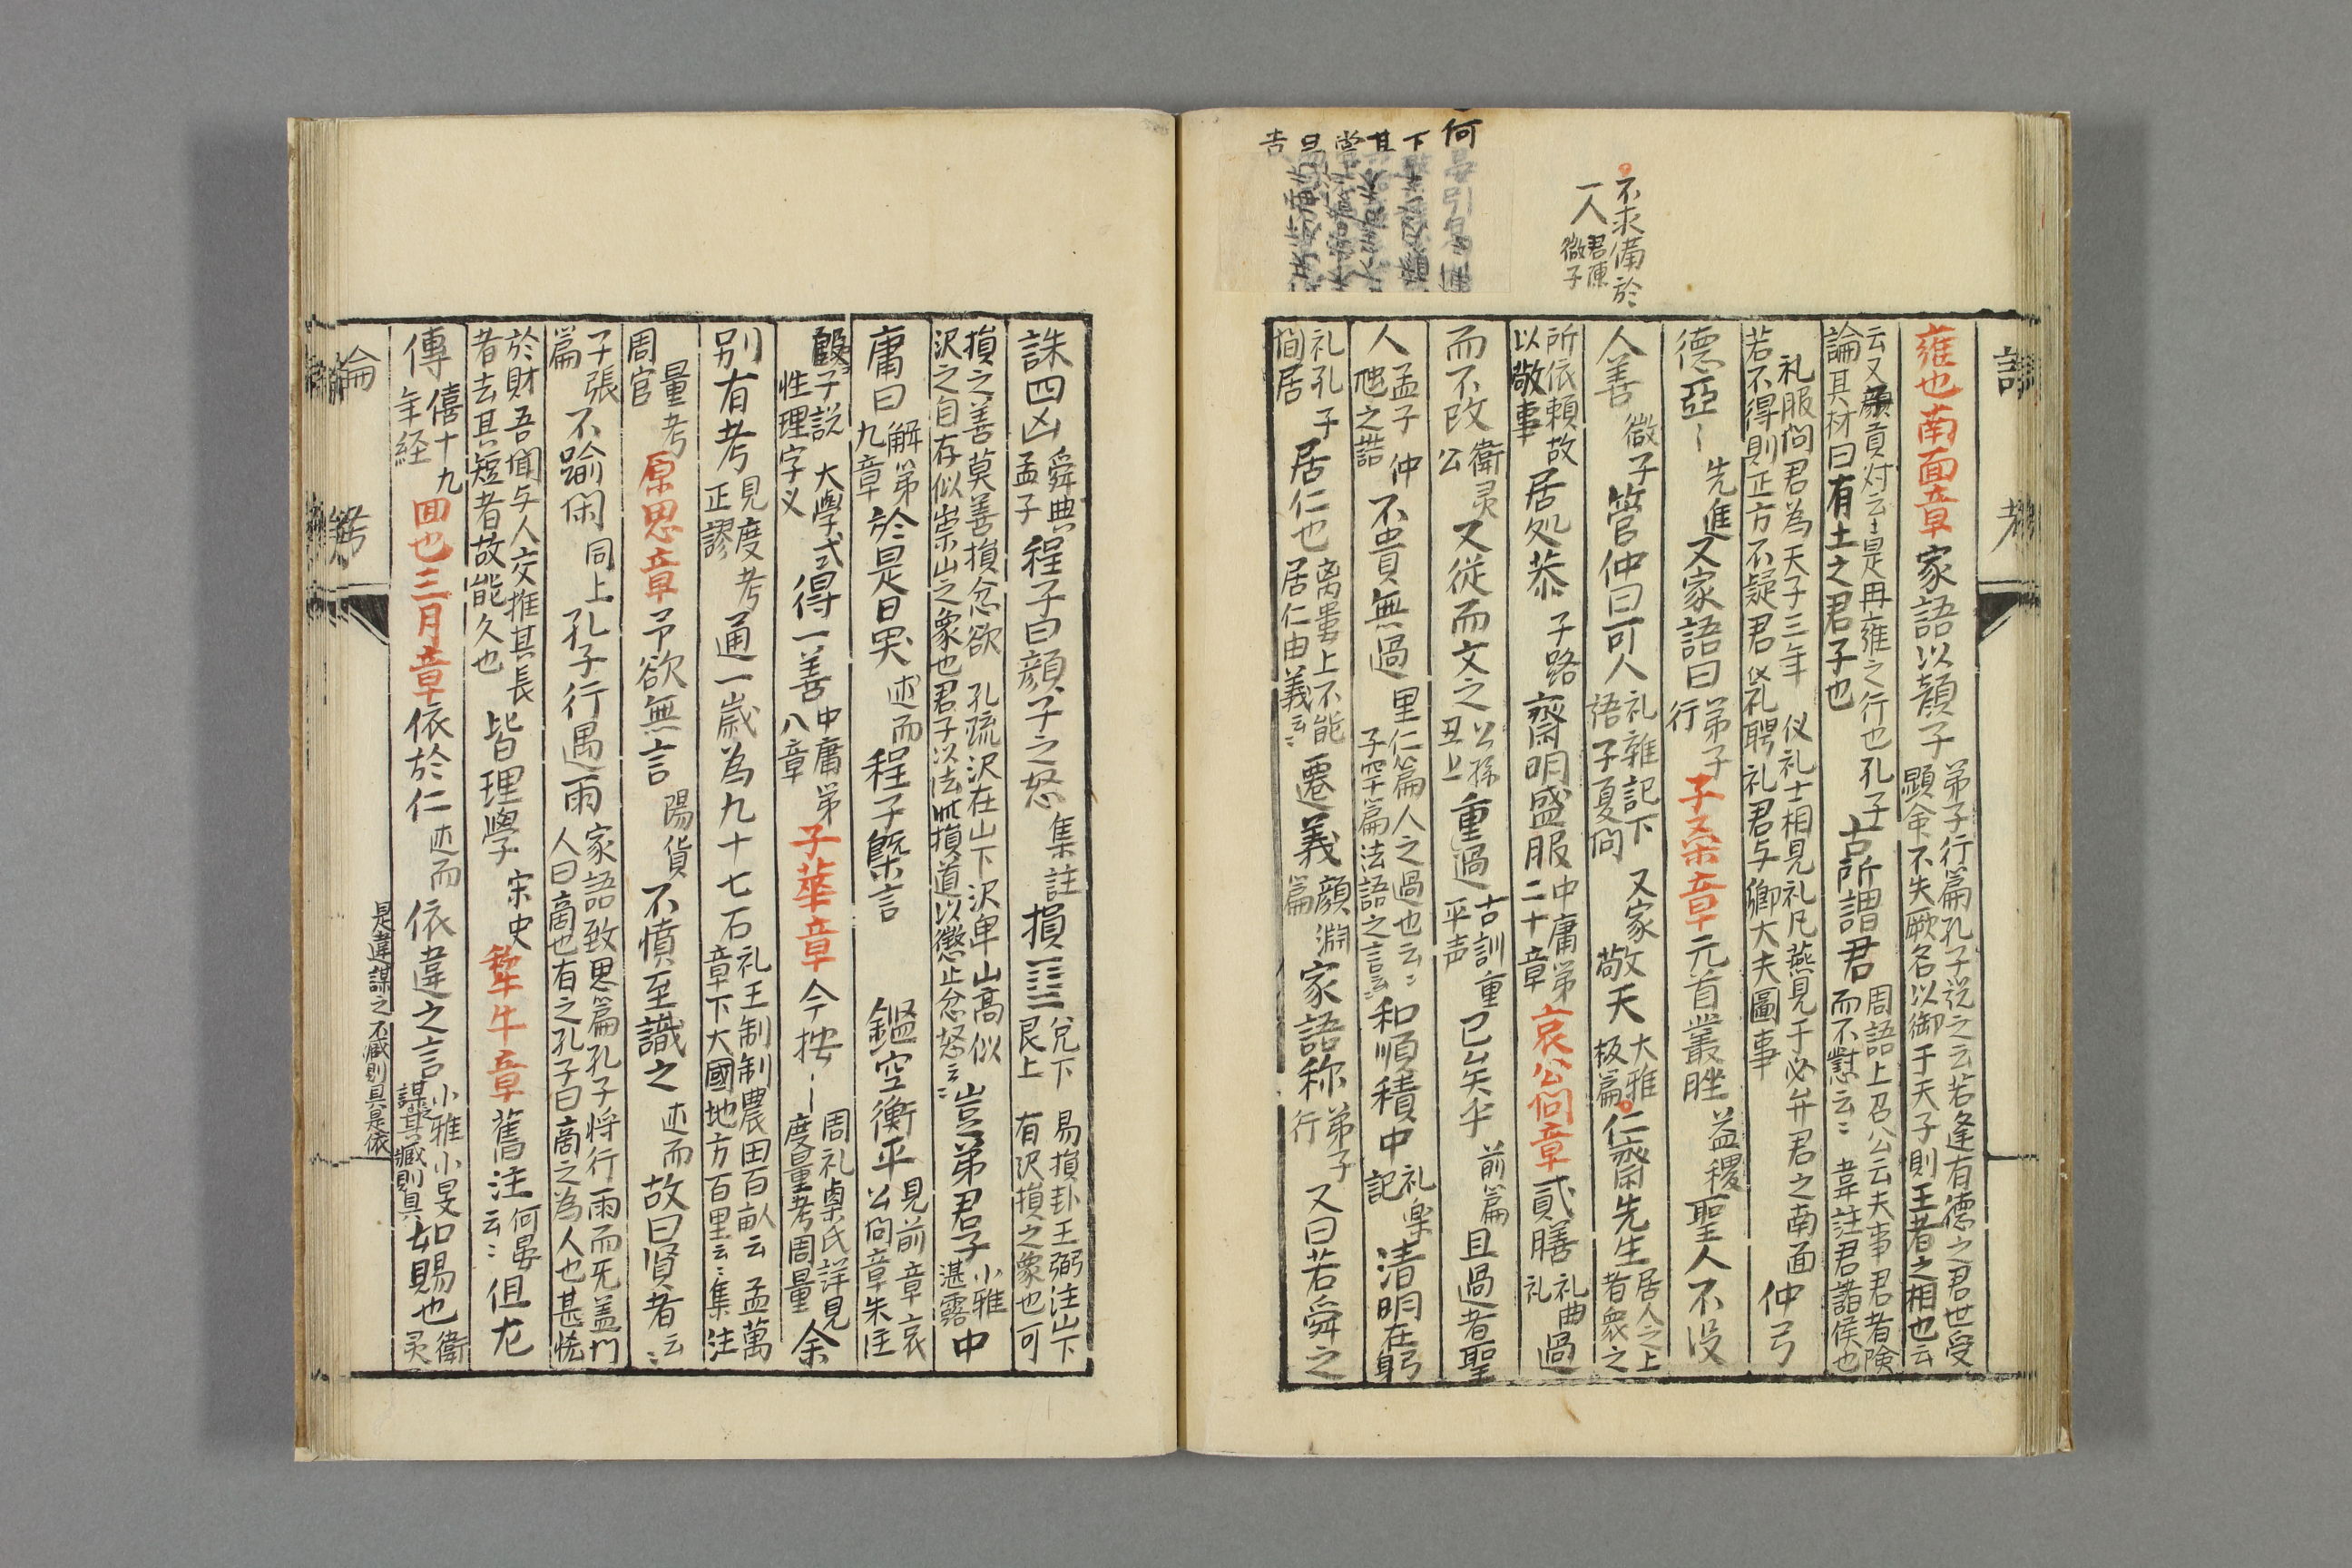 不求備於
一人 君陳
微子
雍也南面章家語以顔子 弟子行篇孔子説之云若逢有德之君世受
顯命不失厥名以御于天子則王者之相也云
云又 貢対云云是冉雍之行也孔子
論其材曰有土之君子也 古所謂君 周語上召公云夫事君者険
而不懟云〻 韋註君諸侯也
礼服問君為天子三年 仪礼士相見礼凡燕見于必弁君之南面
若不得則正方不疑君 仪礼聘礼君与卿大夫圖事 仲弓
德亞〻 先進 又家語曰 弟子
行 子桑章元首叢脞 益稷 聖人不没
人善 微子 管仲曰可人 礼雜記下 又家
語子夏問 敬天 大雅
板篇 仁齋先生 居人之上
者衆之
所依賴故
以敬事 居処恭 子路 齋明盛服 中庸第
二十章 哀公問章貳膳 礼曲
礼 過
而不改 衛灵
公 又從而文之 公孫
丑上 重過 古訓重
平声 已矣乎 前篇 且過者聖
人 孟子 仲
虺之誥 不貴無過 里仁篇人之過也云〻
子罕篇法語之言云〻 和順積中 礼楽
記 清明在躬
礼孔子
間居 居仁也 离婁上不能
居仁由義云〻 遷義 顔淵
篇 家語称 弟子
行 又曰若舜之
誅四凶 舜典
孟子 程子曰顔子之怒 集註 損 兌下
艮上 易損卦王弼注山下
有沢損之象也可
損之善莫善損忿欲 孔疏沢在山下沢卑山高似
沢之自存似崇山之象也君子以法此損道以懲止忿怒云〻 豈弟君子 小雅
湛露 中
庸曰 解第
九章 於是日哭 述而 程子槩言 鑑空衡平 見前章哀
公問章朱注
子説 大学式
性理字义 得一善 中庸第
八章 子華章今按〻 周礼㮚氏詳見
度量考周量 余
別有考 見度考
正謬 通一歳為九十七石 礼王制制農田百畝云 孟萬
章下大國地方百里云〻集注
量考
周官 原思章予欲無言 陽貨 不憤至識之 述而 故曰賢者云〻
子張
篇 不踰閑 同上 孔子行遇雨 家語致思篇孔子将行雨而无盖門
人曰商也有之孔子曰商之為人也甚恡
於財吾聞与人交推其長
者去其短者故能久也 皆理學 宋史 犂牛章舊注 何晏
云〻 但尤
傳 僖十九
年経 回也三月章依於仁 述而 依違之言 小雅小旻
謀其臧則具
是違謀之不臧則具是依 如賜也 衛
灵
論